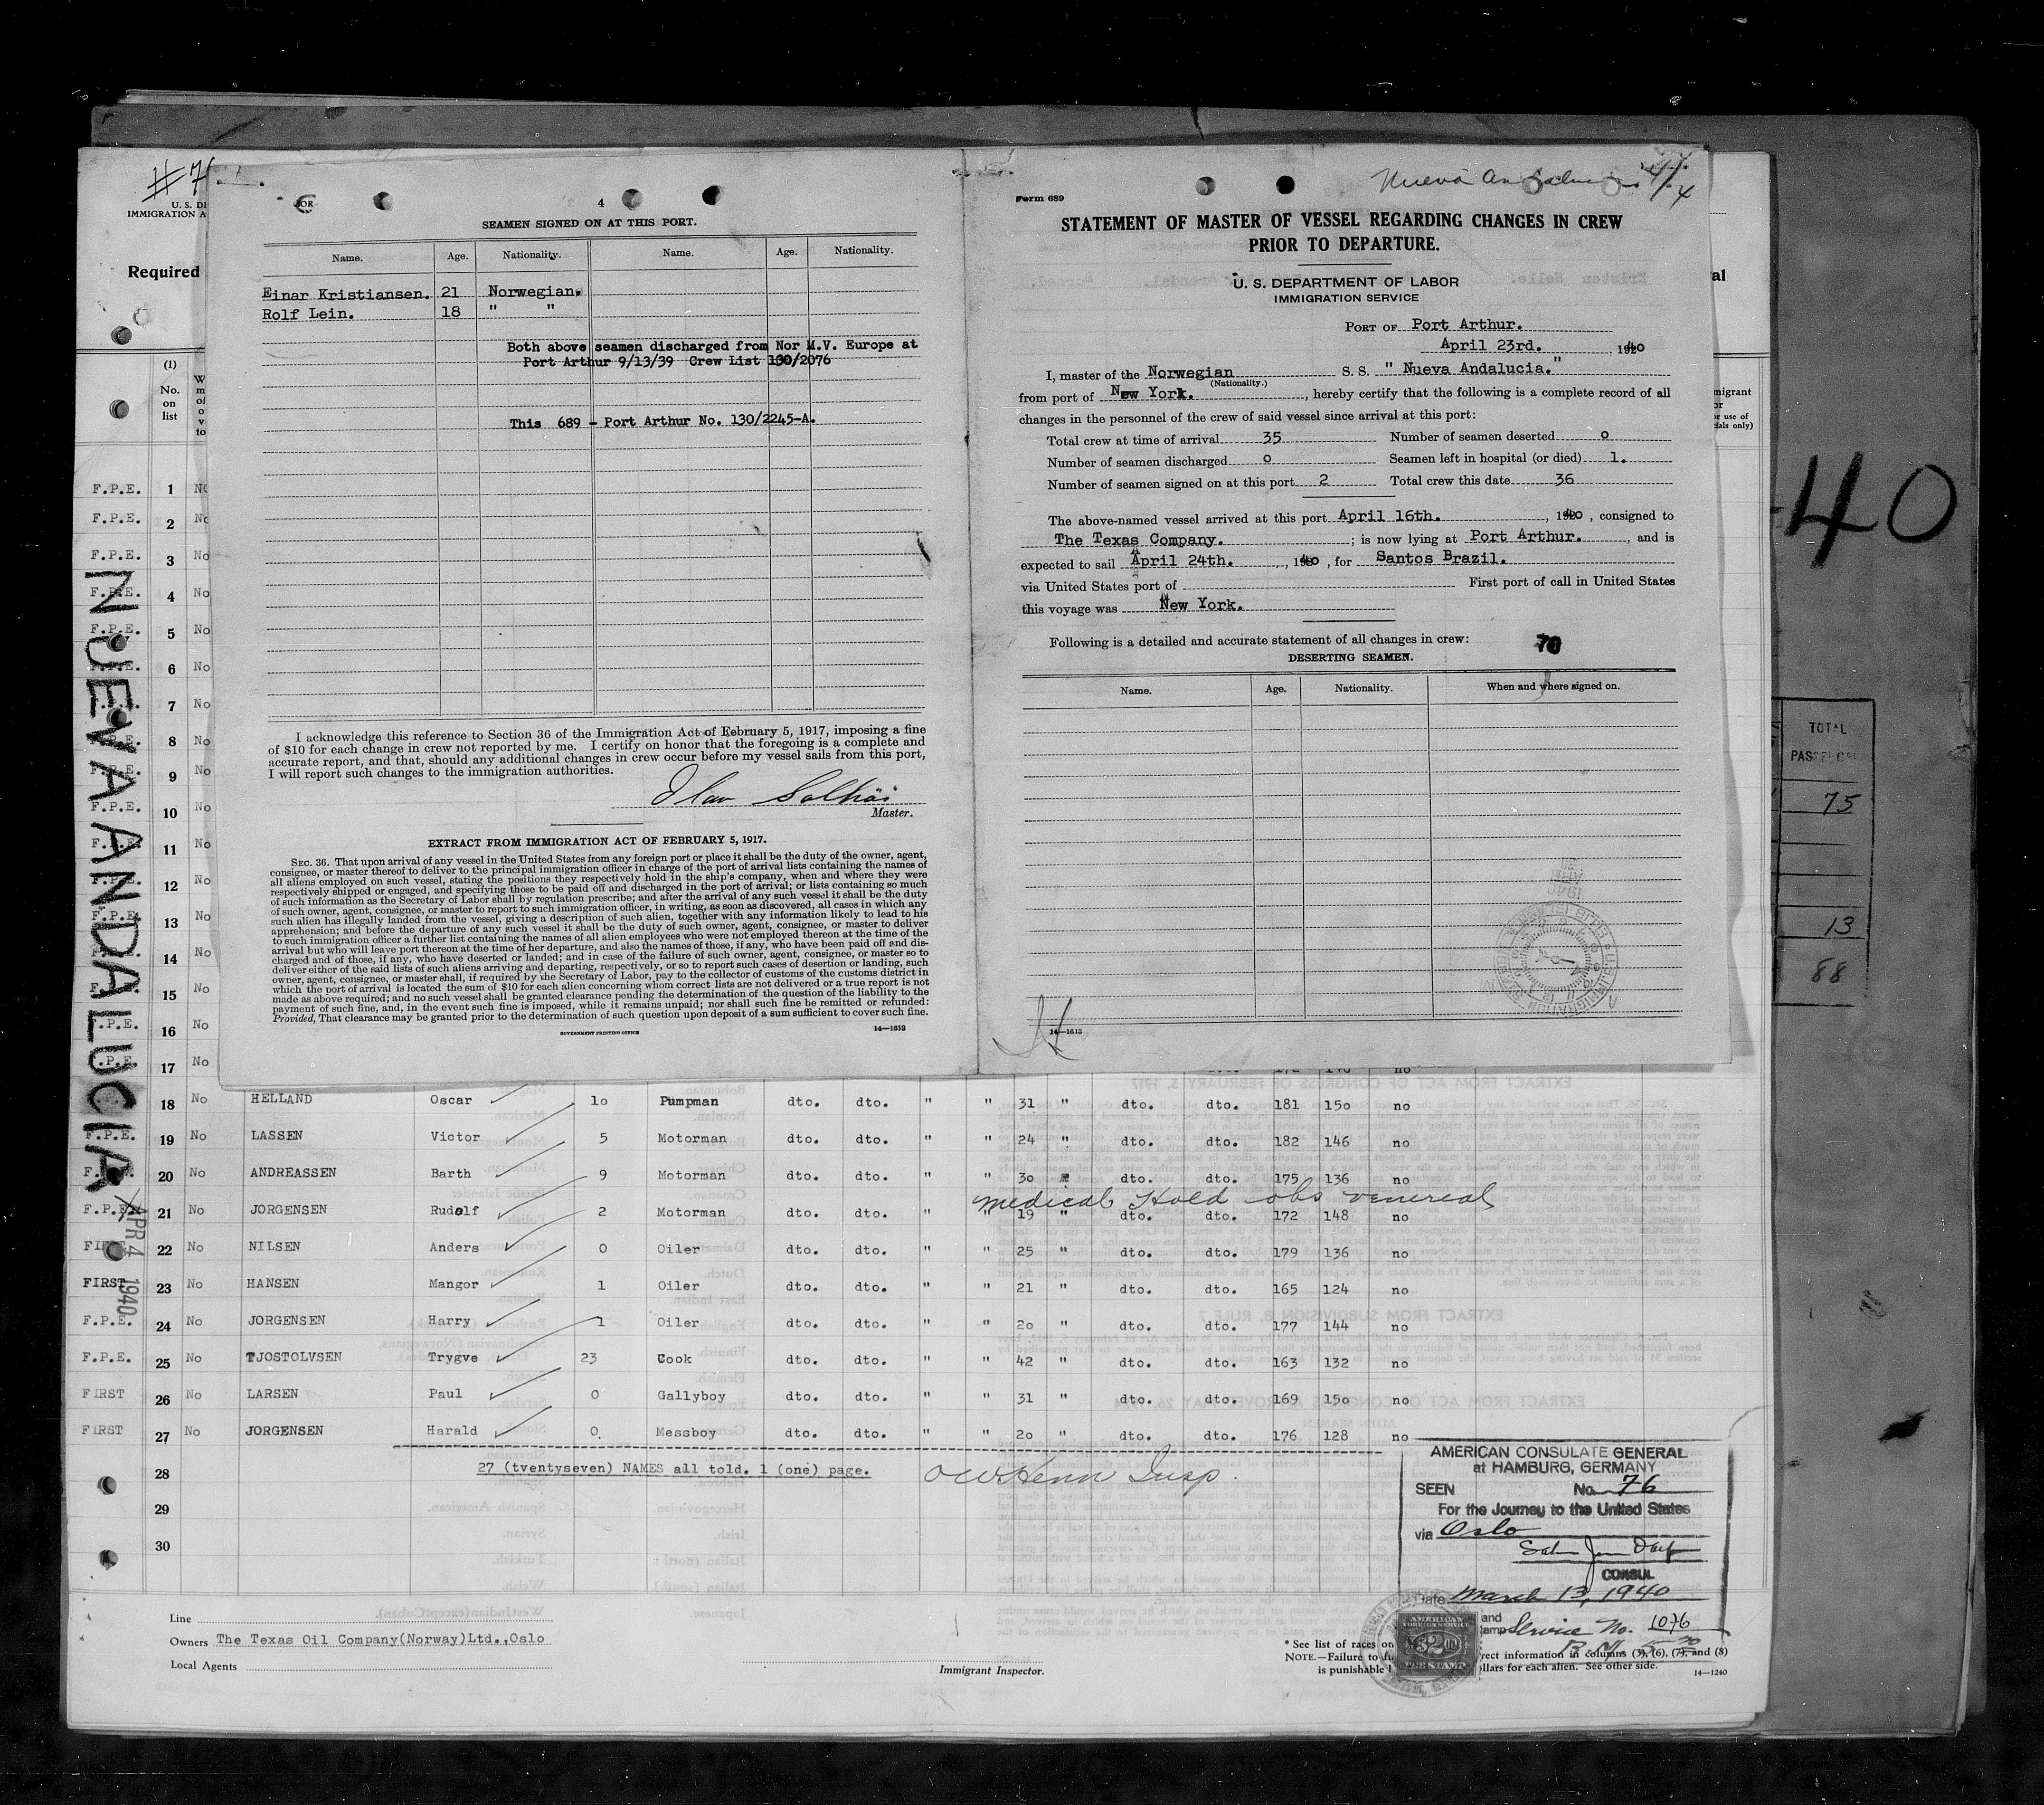 #
U. S. DE
IMMIGRATION A
Required
(1)
No.
on
list
JOR
4
SEAMEN SIGNED ON AT THIS PORT.
Name. Age. Nationality. Name. Age. Nationality.
Einar Kristiansen. 21 Norwegian.
Rolf Lein. 18 " "
Both above seamen discharged from Nor M.V. Europe at
Port Arthur 9/13/39 Crew List 130/2076
This 689 - Port Arthur No. 130/2245-A.
I acknowledge this reference to Section 36 of the Immigration Act of February 5, 1917, imposing a fine
of $10 for each change in crew not reported by me. I certify on honor that the foregoing is a complete and
accurate report, and that, should any additional changes in crew occur before my vessel sails from this port,
I will report such changes to the immigration authorities.
Master.
EXTRACT FROM IMMIGRATION ACT OF FEBRUARY 5, 1917.
SEC. 36. That upon arrival of any vessel in the United States from any foreign port or place it shall be the duty of the owner, agent,
consignee, or master thereof to deliver to the principal immigration officer in charge of the port of arrival lists containing the names of
all aliens employed on such vessel, stating the positions they respectively hold in the ship's company, when and where they were
respectively shipped or engaged, and specifying those to be paid off and discharged in the port of arrival; or lists containing so much
of such information as the Secretary of Labor shall by regulation prescribe; and after the arrival of any such vessel it shall be the duty
of such owner, agent, consignee, or master to report to such immigration officer, in writing, as soon as discovered, all cases in which any
such alien has illegally landed from the vessel, giving a description of such alien, together with any information likely to lead to his
apprehension; and before the departure of any such vessel it shall be the duty of such owner, agent, consignee, or master to deliver
to such immigration officer a further list containing the names of all alien employees who were not employed thereon at the time of the
arrival but who will leave port thereon at the time of her departure, and also the names of those, if any, who have been paid off and dis-
charged and of those, if any, who have deserted or landed; and in case of the failure of such owner, agent, consignee, or master so to
deliver either of the said lists of such aliens arriving and departing, respectively, or so to report such cases of desertion or landing, such
owner, agent, consignee, or master shall, if required by the Secretary of Labor, pay to the collector of customs of the customs district in
which the port of arrival is located the sum of $10 for each alien concerning whom correct lists are not delivered or a true report is not
made as above required; and no such vessel shall be granted clearance pending the determination of the question of the liability to the
payment of such fine, and, in the event such fine is imposed, while it remains unpaid; nor shall such fine be remitted or refunded:
Provided, That clearance may be granted prior to the determination of such question upon deposit of a sum sufficient to cover such fine.
GOVERNMENT PRINTING OFFICE 14—1613
Nueva Andalucia
Form 689
STATEMENT OF MASTER OF VESSEL REGARDING CHANGES IN CREW
PRIOR TO DEPARTURE.
U. S. DEPARTMENT OF LABOR
IMMIGRATION SERVICE
PORT OF Port Arthur.
April 23rd. , 1940
I, master of the Norwegian S. S. " Nueva Andalucia."
(Nationality.)
from port of New York. , hereby certify that the following is a complete record of all
changes in the personnel of the crew of said vessel since arrival at this port:
Total crew at time of arrival 35 Number of seamen deserted 0
Number of seamen discharged 0 Seamen left in hospital (or died) 1.
Number of seamen signed on at this port 2 Total crew this date 36
The above-named vessel arrived at this port April 16th. , 1940 , consigned to
The Texas Company. ; is now lying at Port Arthur. , and is
expected to sail April 24th. , 1940 , for Santos Brazil.
via United States port of First port of call in United States
this voyage was New York.
Following is a detailed and accurate statement of all changes in crew: 70
DESERTING SEAMEN.
Name. Age. Nationality. When and where signed on.
14—1613
40
TOTAL
75
13
88
NUEVA ANDALUCIA
APR 4 1940
F.P.E. 1 No
F.P.E. 2 No
F.P.E. 3 No
F.P.E. 4 No
F.P.E. 5 No
F.P.E. 6 No
7 No
F.P.E. 8 No
F.P.E. 9 No
F.P.E. 10 No
F.P.E. 11 No
F.P.E. 12 No
F.P.E. 13 No
14 No
15 No
F.P.E. 16 No
F.P.E. 17 No
18 No HELLAND Oscar 10 Pumpman dto. dto. " " 31 " dto. dto. 181 150 no
F.P.E. 19 No LASSEN Victor 5 Motorman dto. dto. " " 24 " dto. dto. 182 146 no
20 No ANDREASSEN Barth 9 Motorman dto. dto. " " 30 " dto. dto. 175 136 no
medical Hold obs venereal
F.P.E. 21 No JORGENSEN Rudolf 2 Motorman dto. dto. " " 19 " dto. dto. 172 148 no
22 No NILSEN Anders 0 Oiler dto. dto. " " 25 " dto. dto. 179 136 no
FIRST 23 No HANSEN Mangor 1 Oiler dto. dto. " " 21 " dto. dto. 165 124 no
F.P.E. 24 No JORGENSEN Harry 1 Oiler dto. dto. " " 20 " dto. dto. 177 144 no
F.P.E. 25 No TJOSTOLVSEN Trygve 23 Cook dto. dto. " " 42 " dto. dto. 163 132 no
FIRST 26 No LARSEN Paul 0 Gallyboy dto. dto. " " 31 " dto. dto. 169 150 no
FIRST 27 No JORGENSEN Harald 0 Messboy dto. dto. " " 20 " dto. dto. 176 128 no
28 27 (tventyseven) NAMES all told. 1 (one) page. Insp.
29
30
AMERICAN CONSULATE GENERAL
at HAMBURG, GERMANY
SEEN No. 76
For the Journey to the United States
via Oslo
CONSUL
Date March 13, 1940
Service No. 1076
Line
Owners The Texas Oil Company(Norway)Ltd.,Oslo
Local Agents
Immigrant Inspector.
* See list of races on
NOTE.—Failure to fu rect information in columns (3), (6), (7), and (8)
is punishable llars for each alien. See other side.
14—1240